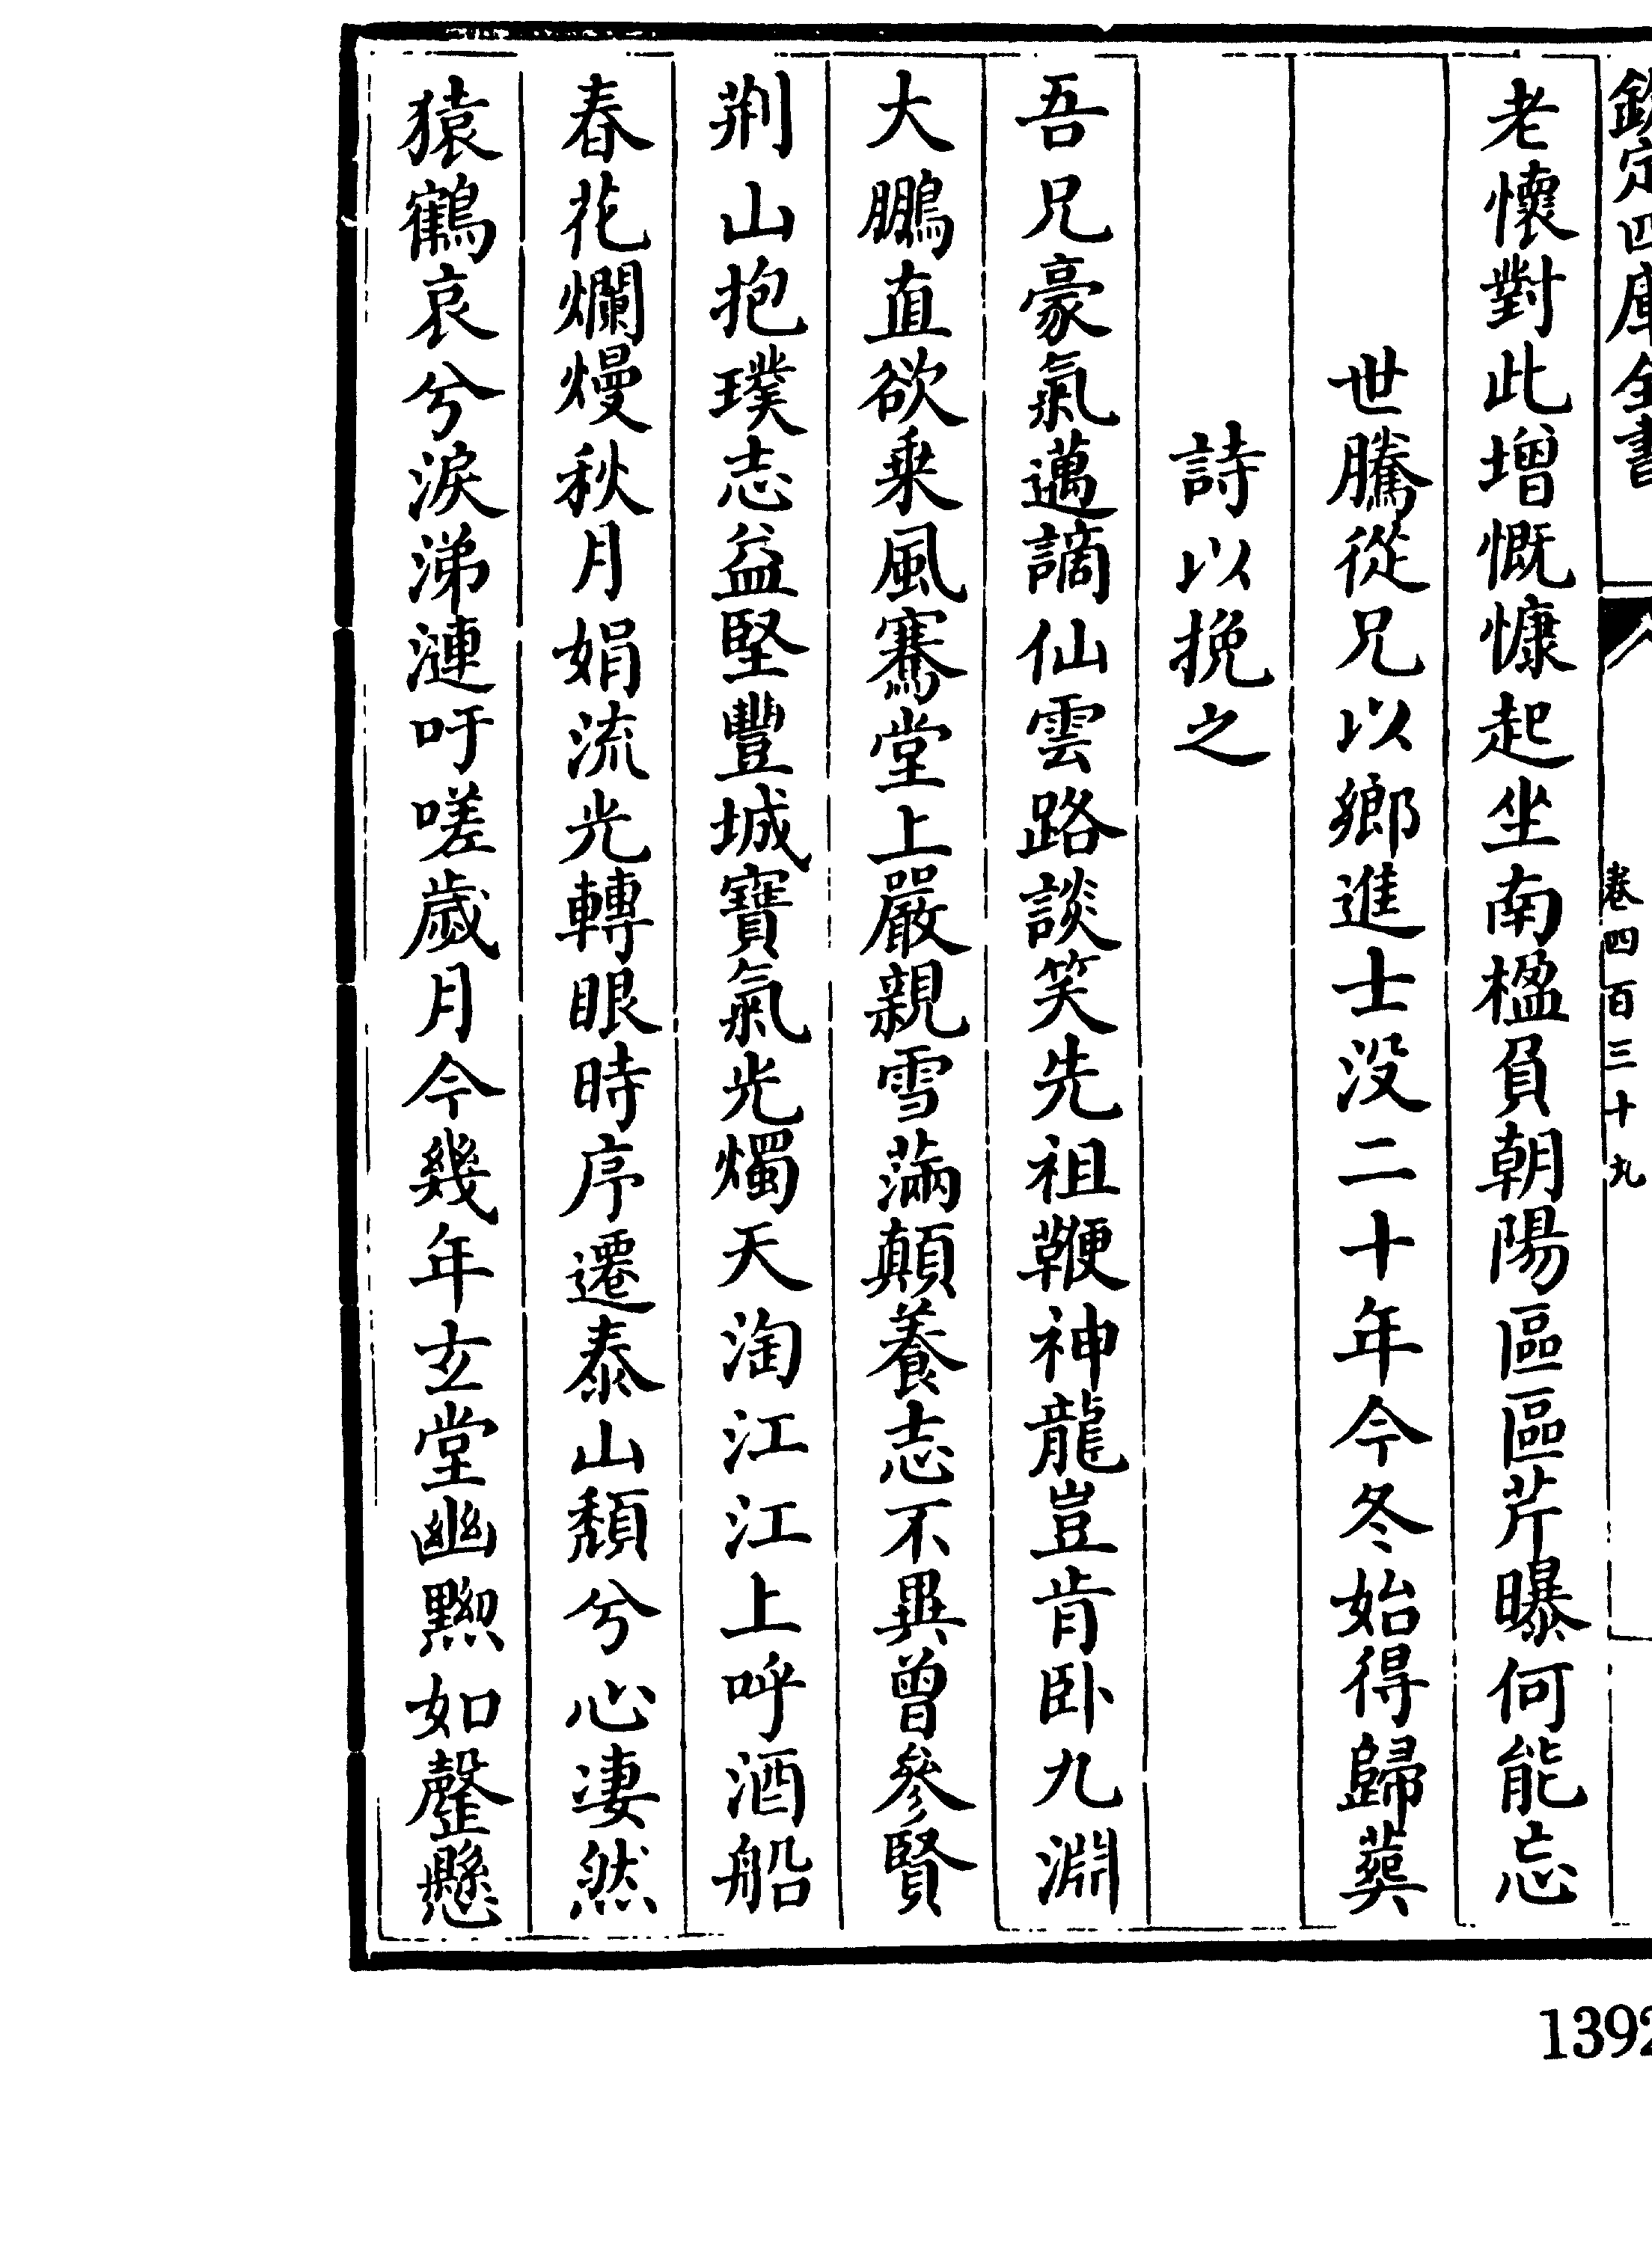 欽定四庫全書
卷四百三十九
老懷對此增慨慷起坐南楹負朝陽區區芹曝何能忘
世騰從兄以鄉進士没二十年今冬始得歸葬
詩以挽之
吾兄豪氣邁謫仙雲路談笑先祖鞭神龍豈肯卧九淵
大鵬直欲乗風騫堂上嚴親雪滿顛養志不異曾參賢
荆山抱璞志益堅豐城寳氣光燭天淘江江上呼酒船
春花爛熳秋月娟流光轉眼時序遷泰山頽兮心凄然
猿鶴哀兮淚涕漣吁嗟歲月今幾年玄堂幽黝如罄懸
1392